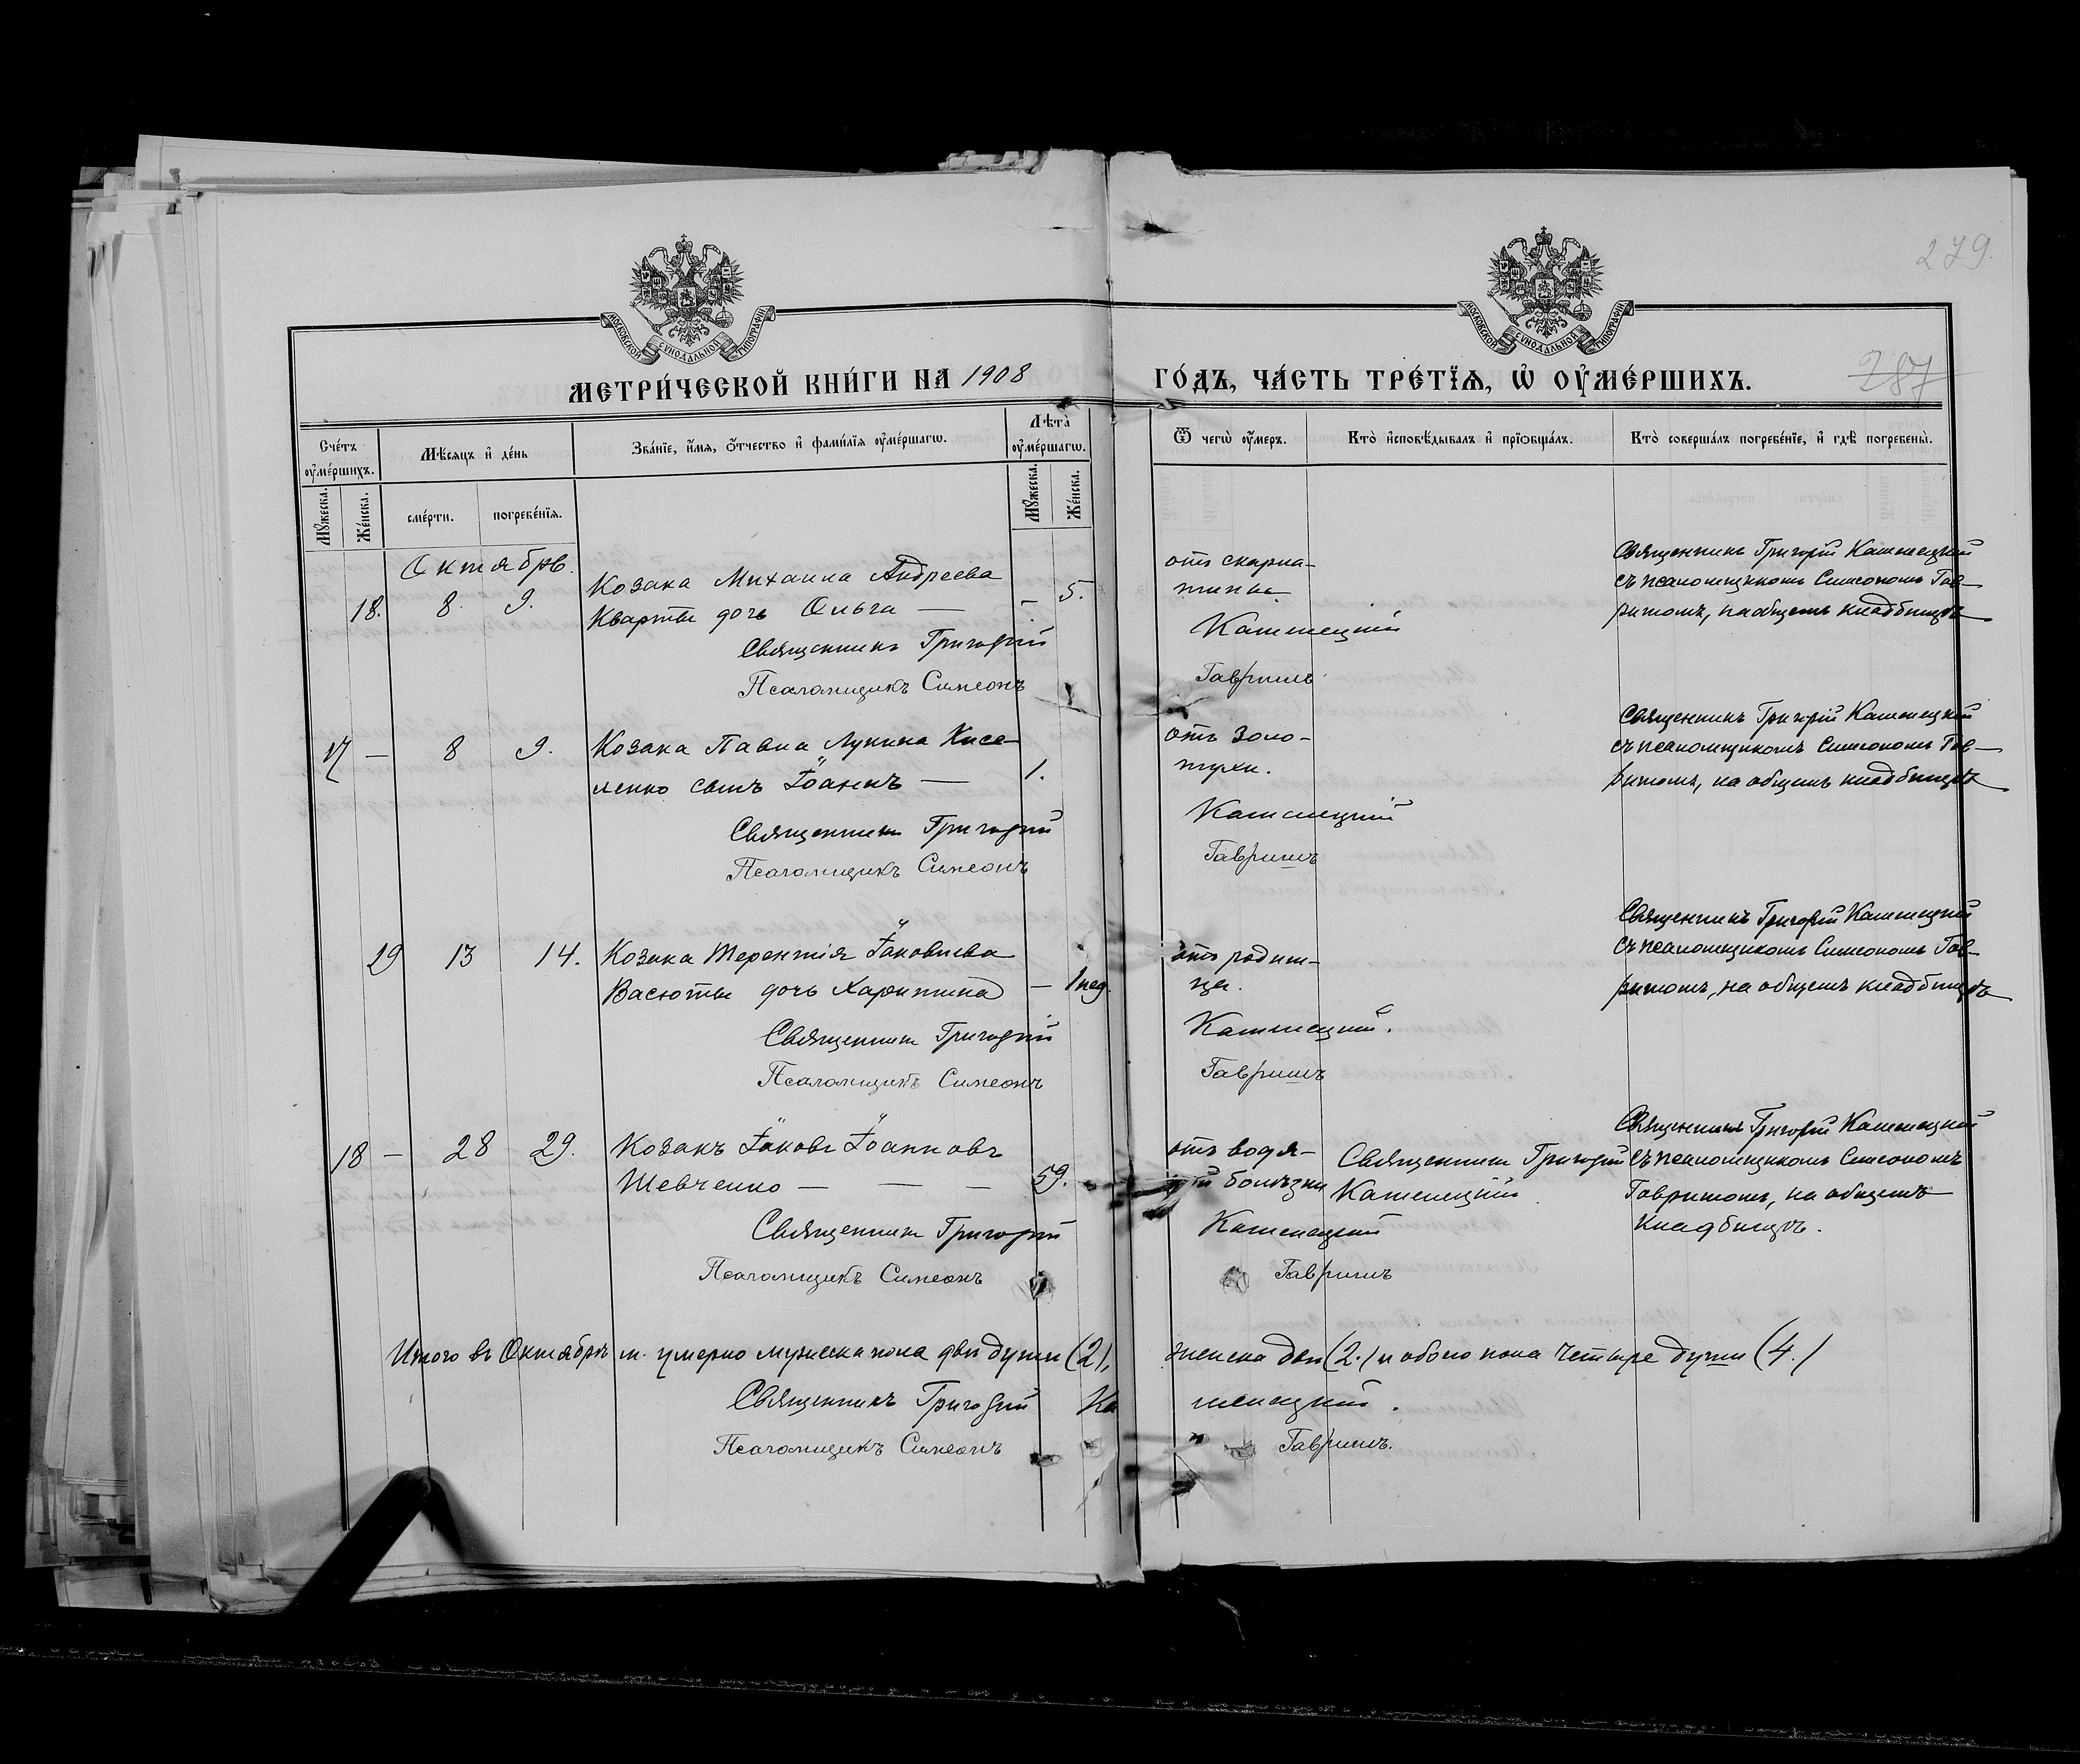 279.
МОСКОВСКОЙ СѴНОДАЛЬНОЙ ТИПОГРАФІИ
МОСКОВСКОЙ СѴНОДАЛЬНОЙ ТИПОГРАФІИ
МЕТРИ́ЧЕСКОЙ КНИ́ГИ НА 1908
ГО́ДЪ, ЧА́СТЬ ТРЕ́ТЇѦ, Ѡ҆ ОУ҆МЕ́РШИХЪ.
287
Сче́тъ оу҆ме́ршихъ.
Мѣ́сяцъ и҆ де́нь
Зва́нїе, и҆́мя, ѻ҆́тчество и҆ фами́лїя оу҆ме́ршагѡ.
Лѣ́та̀ оу҆ме́ршагѡ.
Ѿ чегѡ̀ оу҆́меръ.
Кто̀ и҆сповѣ́дывалъ и҆ прїѻбща́лъ.
Кто̀ соверша́лъ погребе́нїе, и҆ гдѣ̀ погребены̀.
Мꙋ́жеска.
Же́нска.
сме́рти.
погребе́нїя.
Мꙋ́жеска.
Же́нска.
Октябрь.
18. 8. 9.
Козака Михаила Андреева
Кварты дочь Ольга — – 5.
Священникъ Григорій
Псаломщикъ Симеонъ
отъ скарла-
тины
Каменецкій
Гавришъ
Священникъ Григорій Каменецкій
съ псаломщикомъ Симеономъ Гав-
ришомъ, на общемъ кладбищѣ
17 — 8 9.
Козака Павла Лукина Кисе-
ленко сынъ Іоаннъ — 1.
Священникъ Григорій
Псаломщикъ Симеонъ
отъ золо-
тухи.
Каменецкій
Гавришъ
Священникъ Григорій Каменецкій
съ псаломщикомъ Симеономъ Гав-
ришомъ, на общемъ кладбищѣ
29 13 14.
Козака Терентія Іаковлева
Васюты дочь Харитина — 1 нед.
Священникъ Григорій
Псаломщикъ Симеонъ
отъ родим-
ца.
Каменецкій.
Гавришъ
Священникъ Григорій Каменецкій
съ псаломщикомъ Симеономъ Гав-
ришомъ, на общемъ кладбищѣ
18 — 28 29.
Козакъ Іаковъ Іоанновъ
Шевченко — — — 59. –
Священникъ Григорій
Псаломщикъ Симеонъ
отъ водя-
болѣзни
Каменецкій
Гавришъ
Священникъ Григорій
Каменецкій
Священникъ Григорій Каменецкій
съ псаломщикомъ Симеономъ
Гавришомъ, на общемъ
кладбищѣ.
Итого въ Октябрѣ м. умерло мужеска пола двѣ души (2),
женска двѣ (2.) и обоего пола четыре души (4.)
Священникъ Григорій Ка
менецкій.
Псаломщикъ Симеонъ
Гавришъ.